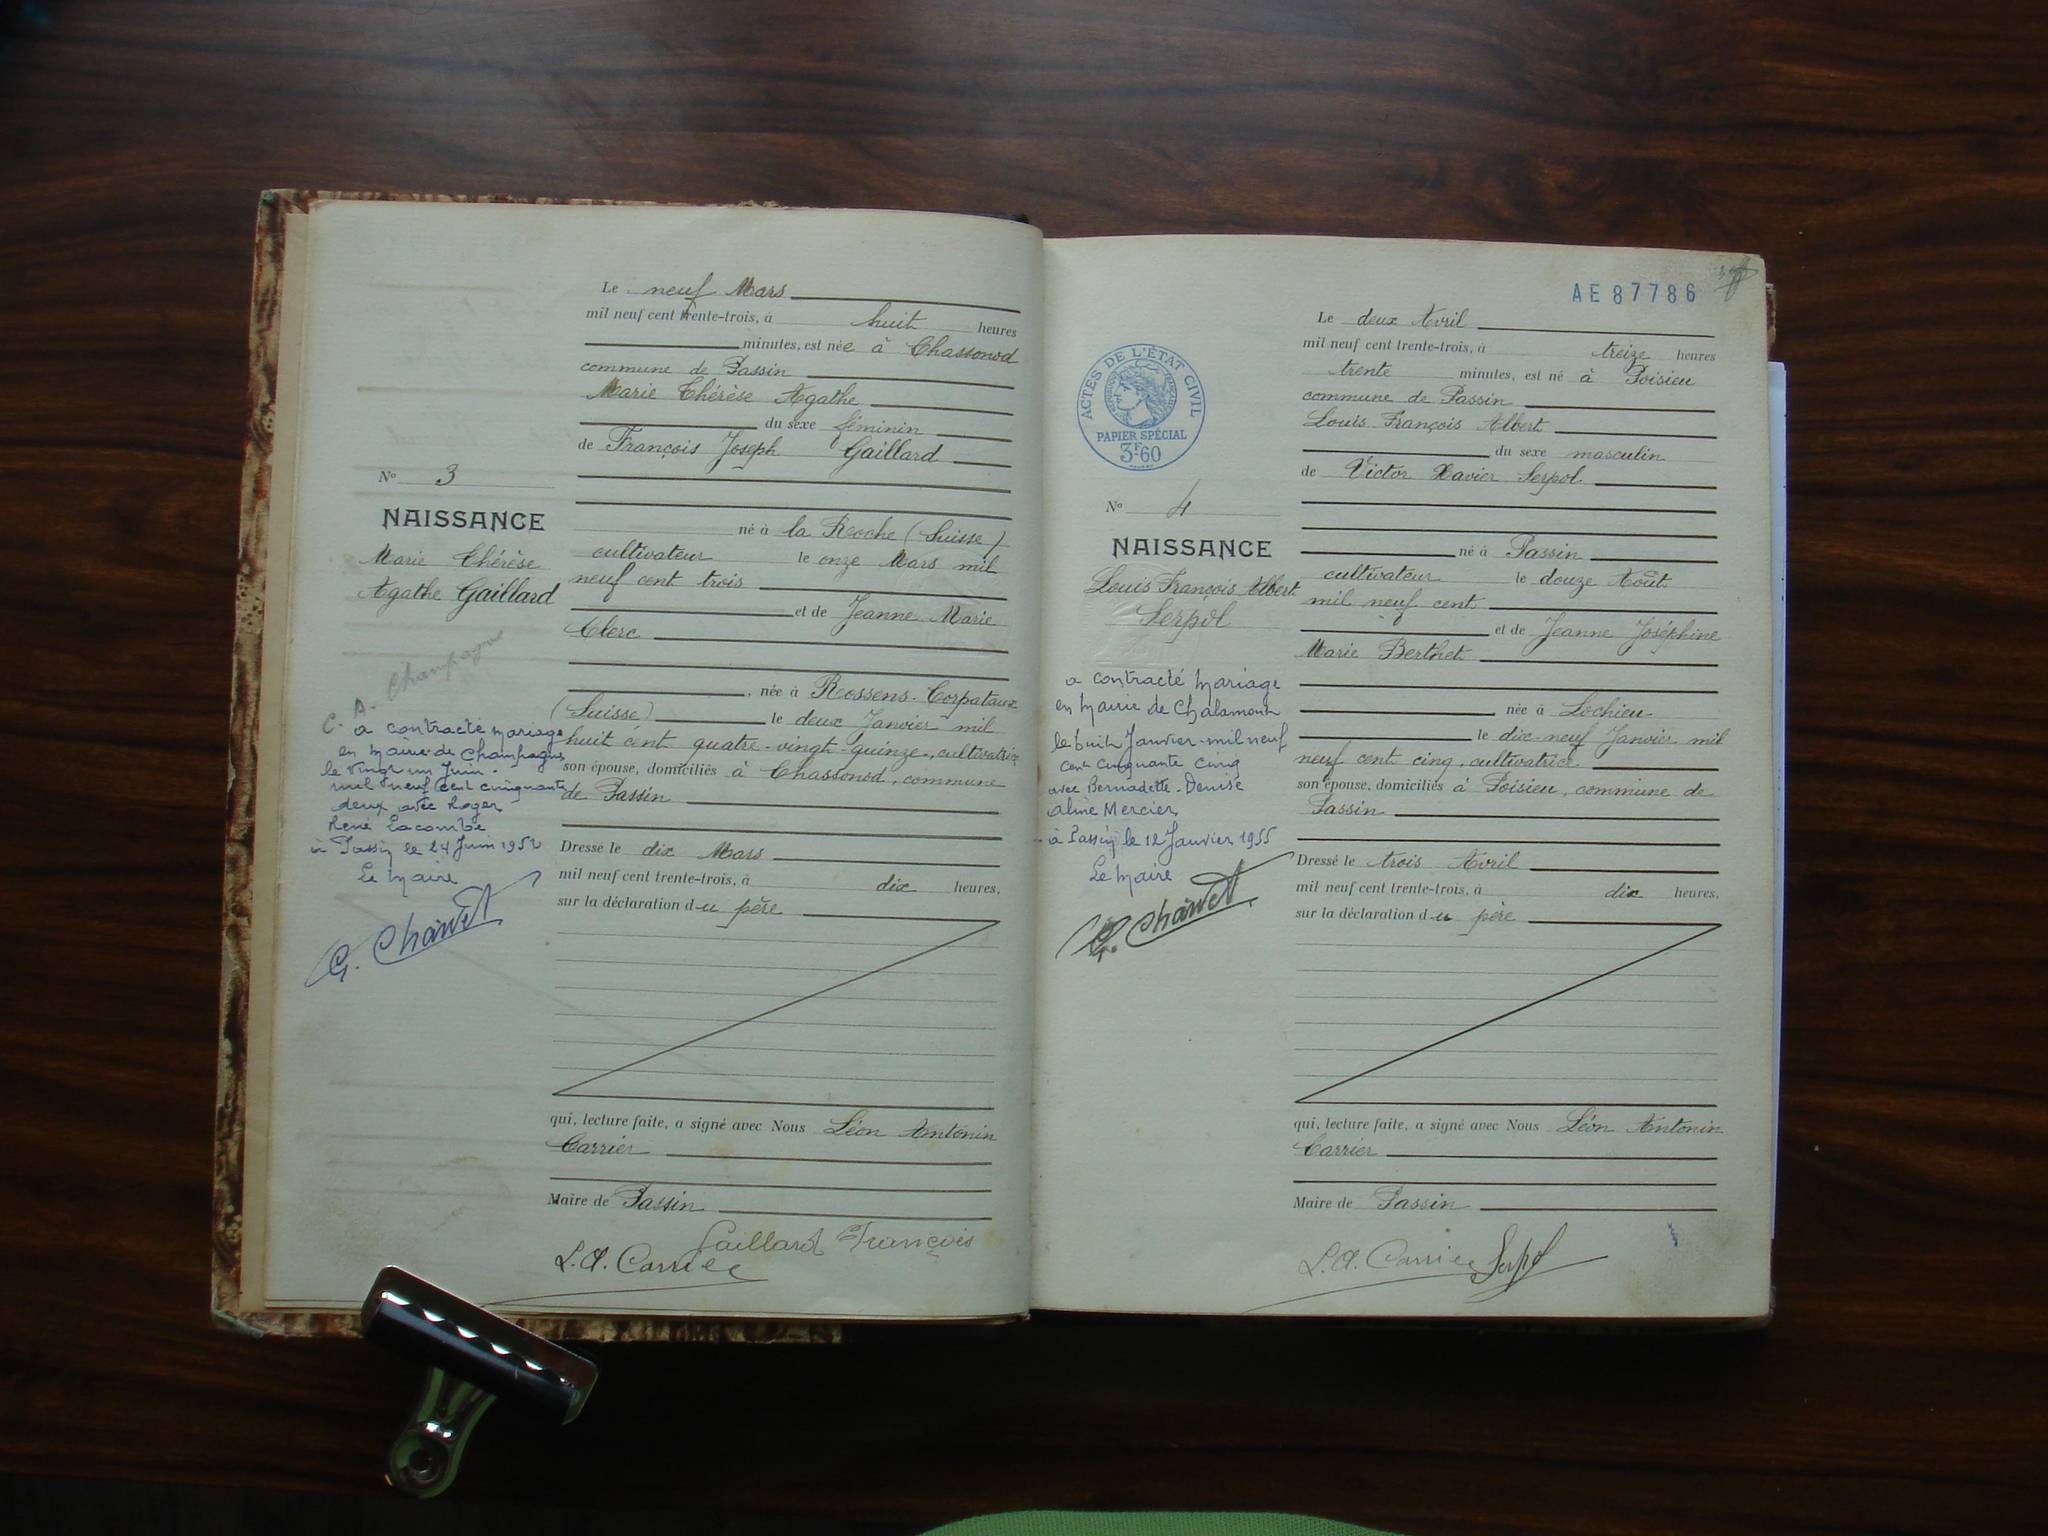 Le neuf Mars
mil neuf cent trente-trois, à huit heures
minutes, est née à Chassonod
commune de Passin
Marie Thérèse Agathe
du sexe féminin
de François Joseph Gaillard
né à la Roche (Suisse)
cultivateur le onze Mars mil
neuf cent trois
et de Jeanne Marie
Clerc
, née à Rossens-Corpataux
(Suisse) le deux Janvier mil
huit cent quatre-vingt-quinze, cultivatrice
son épouse, domiciliés à Chassonod, commune
de Passin
Dressé le dix Mars
mil neuf cent trente-trois, à dix heures,
sur la déclaration du père
qui, lecture faite, a signé avec Nous Léon Antonin
Carrier
Maire de Passin
Gaillard François
L. A. Carrier
No 3
NAISSANCE
Marie Thérèse
Agathe Gaillard
C. A. Champagne
a contracté mariage
en Mairie de Champagne
le vingt un Juin
mil neuf cent cinquante
deux avec Roger
René Lacombe
à Passin le 24 Juin 1952
Le Maire
G. Chanvet
AE 87786
ACTES DE L'ÉTAT CIVIL
PAPIER SPÉCIAL
3F60
No 4
NAISSANCE
Louis François Albert
Serpol
a contracté mariage
en Mairie de Chalamont
le huit Janvier mil neuf
cent cinquante cinq
avec Bernadette-Denise
Aline Mercier
à Passin le 12 Janvier 1955
Le Maire
G. Chanvet
Le deux Avril
mil neuf cent trente-trois, à treize heures
trente minutes, est né à Poisieu
commune de Passin
Louis François Albert
du sexe masculin
de Victor Xavier Serpol
né à Passin
cultivateur le douze Août
mil neuf cent
et de Jeanne Joséphine
Marie Berthet
née à Lochieu
le dix-neuf Janvier mil
neuf cent cinq, cultivatrice
son épouse, domiciliés à Poisieu, commune de
Passin
Dressé le trois Avril
mil neuf cent trente-trois, à dix heures,
sur la déclaration du père
qui, lecture faite, a signé avec Nous Léon Antonin
Carrier
Maire de Passin
L. A. Carrier Serpol